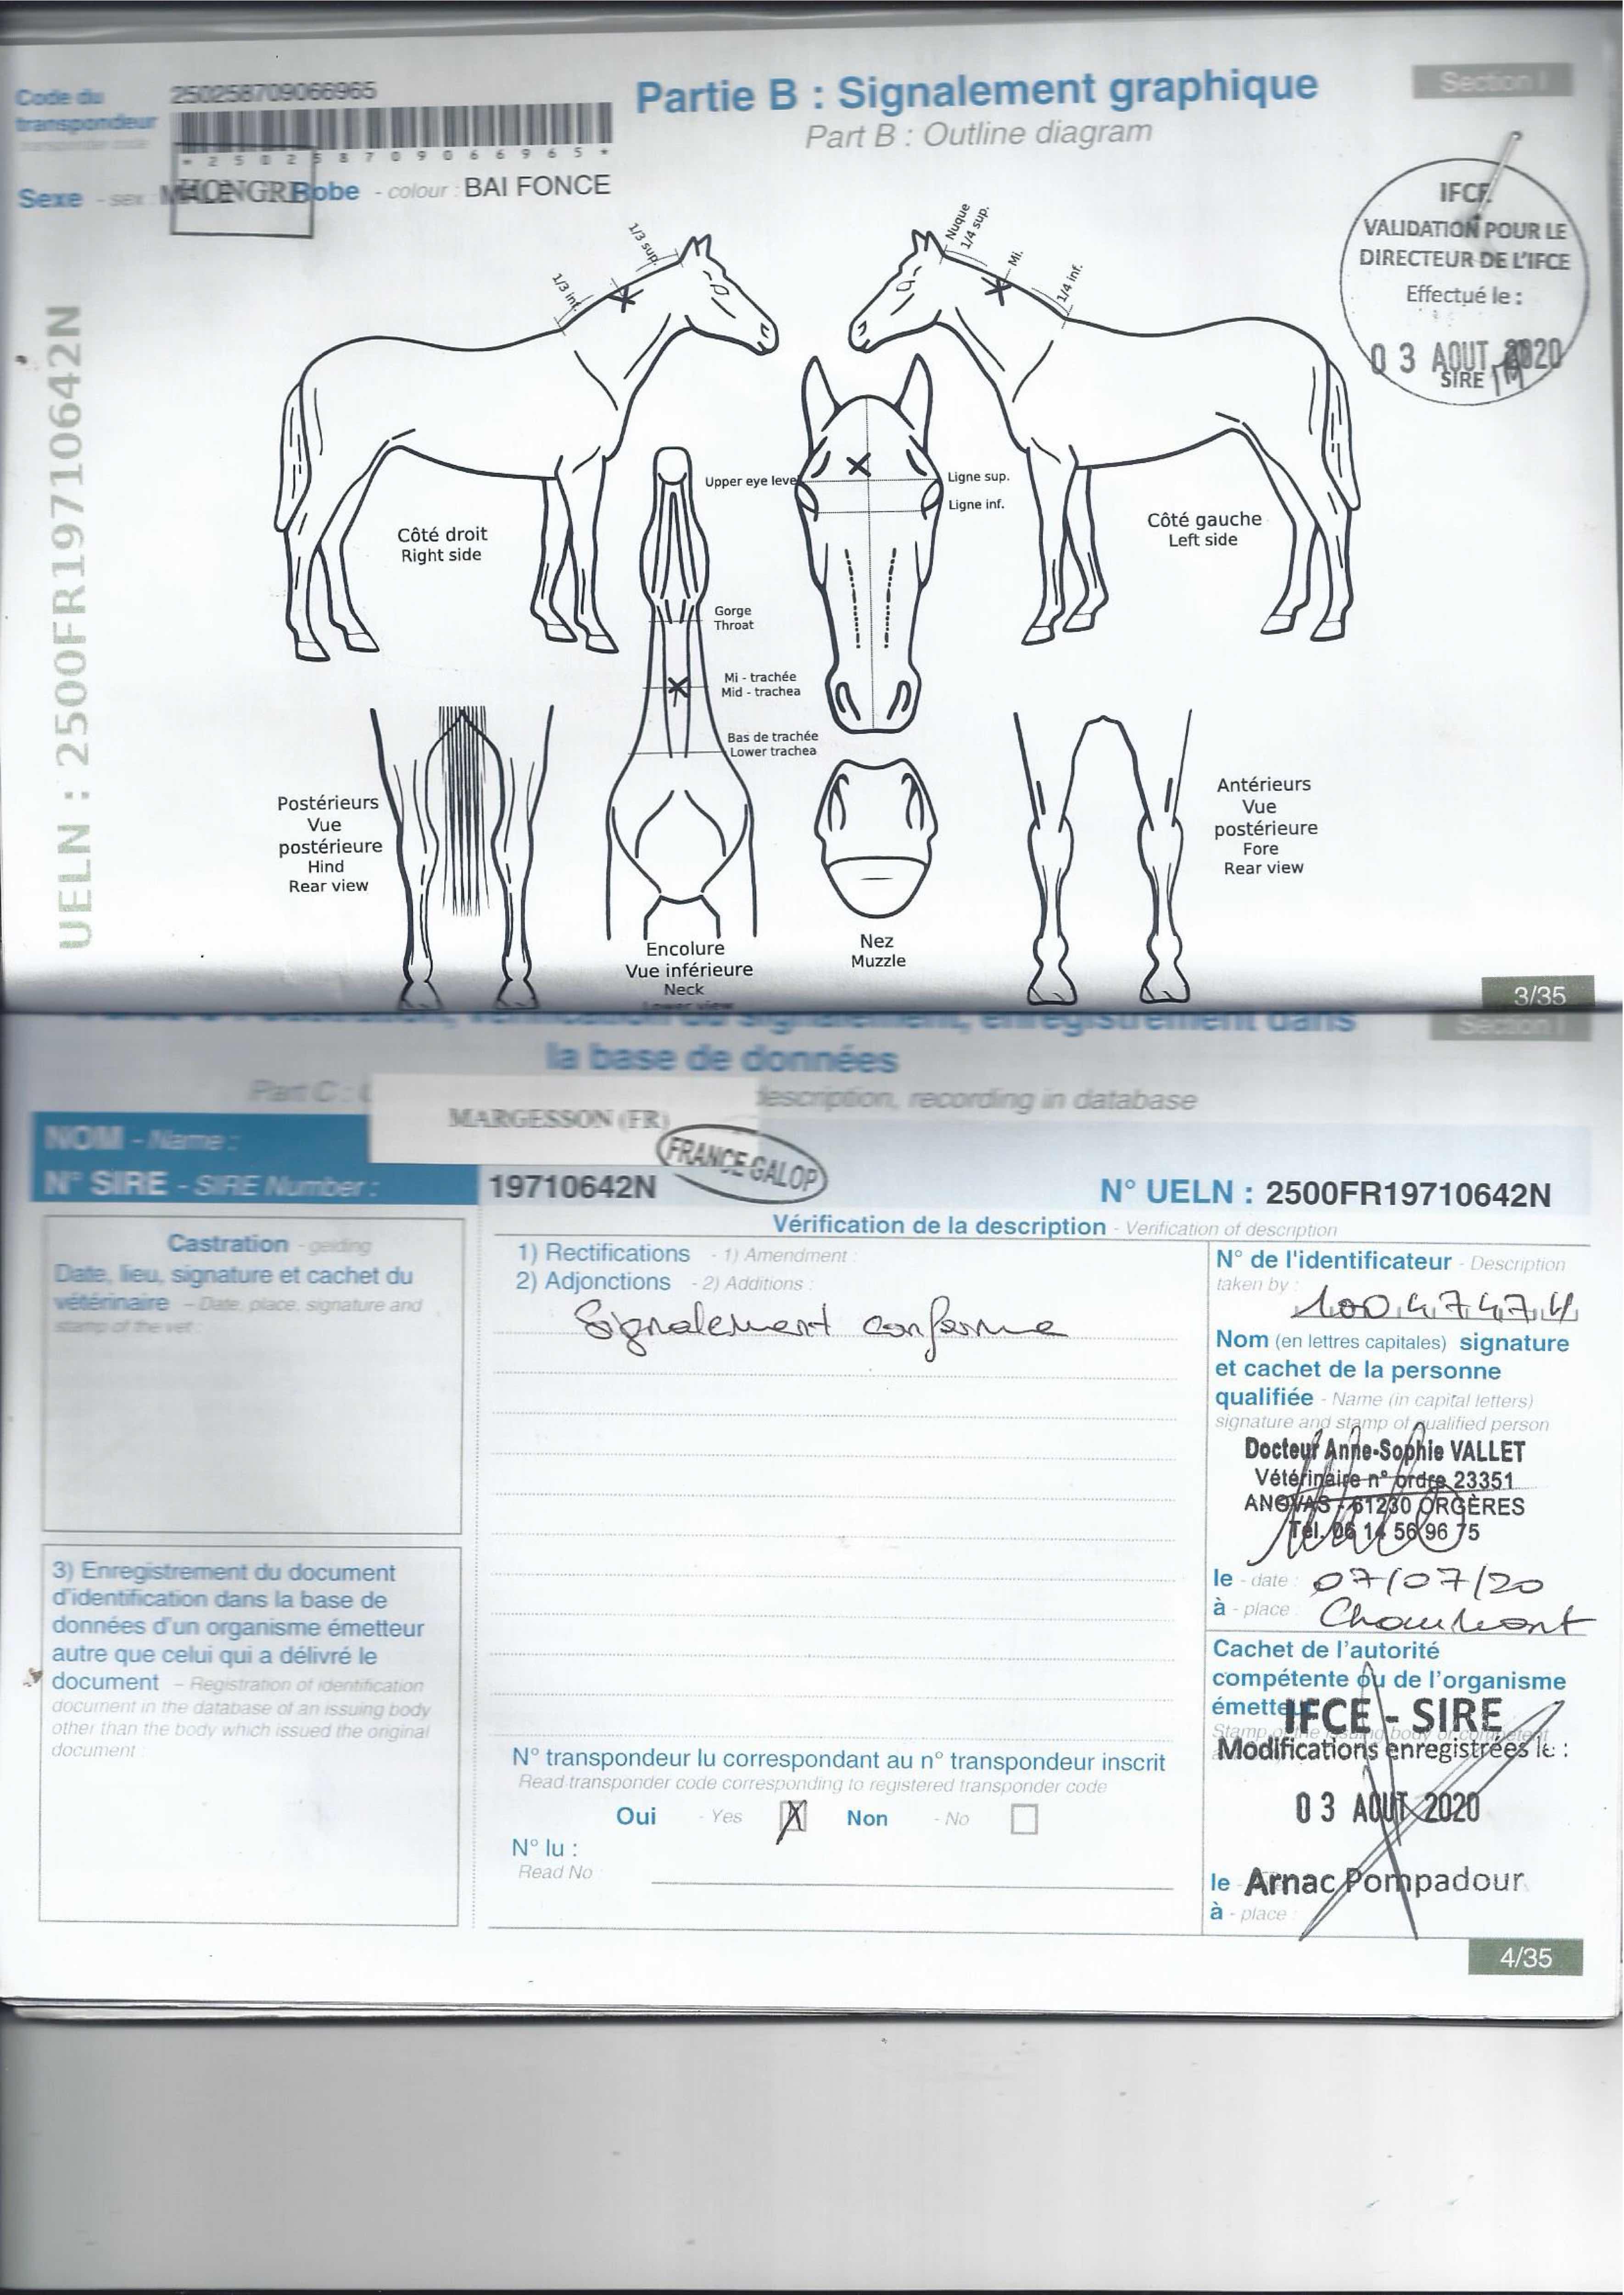 Code du
transpondeur
transponder code
250258709066965
* 2 5 0 2 5 8 7 0 9 0 6 6 9 6 5 *
Partie B : Signalement graphique
Part B : Outline diagram
Section I
Sexe - sex : MALE HONGRE Robe - colour : BAI FONCE
IFCE
VALIDATION POUR LE
DIRECTEUR DE L'IFCE
Effectué le :
0 3 AOUT 2020
SIRE
UELN : 2500FR19710642N
1/3 sup.
1/3 inf.
Nuque
1/4 sup.
Mi.
1/4 inf.
Upper eye level
Ligne sup.
Ligne inf.
Côté droit
Right side
Côté gauche
Left side
Gorge
Throat
Mi - trachée
Mid - trachea
Bas de trachée
Lower trachea
Postérieurs
Vue
postérieure
Hind
Rear view
Antérieurs
Vue
postérieure
Fore
Rear view
Encolure
Vue inférieure
Neck
Lower view
Nez
Muzzle
3/35
signalement, enregistrement dans
Section I
la base de données
Part C :
description, recording in database
MARGESSON (FR)
FRANCE GALOP
NOM - Name :
N° SIRE - SIRE Number :
19710642N
N° UELN : 2500FR19710642N
Castration - gelding
Date, lieu, signature et cachet du
vétérinaire - Date, place, signature and
stamp of the vet :
Vérification de la description - Verification of description
1) Rectifications - 1) Amendment :
2) Adjonctions - 2) Additions :
Signalement conforme
N° de l'identificateur - Description
taken by :
10047474
Nom (en lettres capitales) signature
et cachet de la personne
qualifiée - Name (in capital letters)
signature and stamp of qualified person
Docteur Anne-Sophie VALLET
Vétérinaire n° ordre 23351
ANOVAS - 61230 ORGÈRES
Tél. 06 14 56 96 75
le - date : 07/07/20
à - place : Chaumont
3) Enregistrement du document
d'identification dans la base de
données d'un organisme émetteur
autre que celui qui a délivré le
document - Registration of identification
document in the database of an issuing body
other than the body which issued the original
document :
Cachet de l'autorité
compétente ou de l'organisme
émetteur
IFCE - SIRE
Modifications enregistrées le :
0 3 AOUT 2020
le Arnac Pompadour
à - place :
N° transpondeur lu correspondant au n° transpondeur inscrit
Read transponder code corresponding to registered transponder code
Oui - Yes X Non - No
N° lu :
Read No
4/35